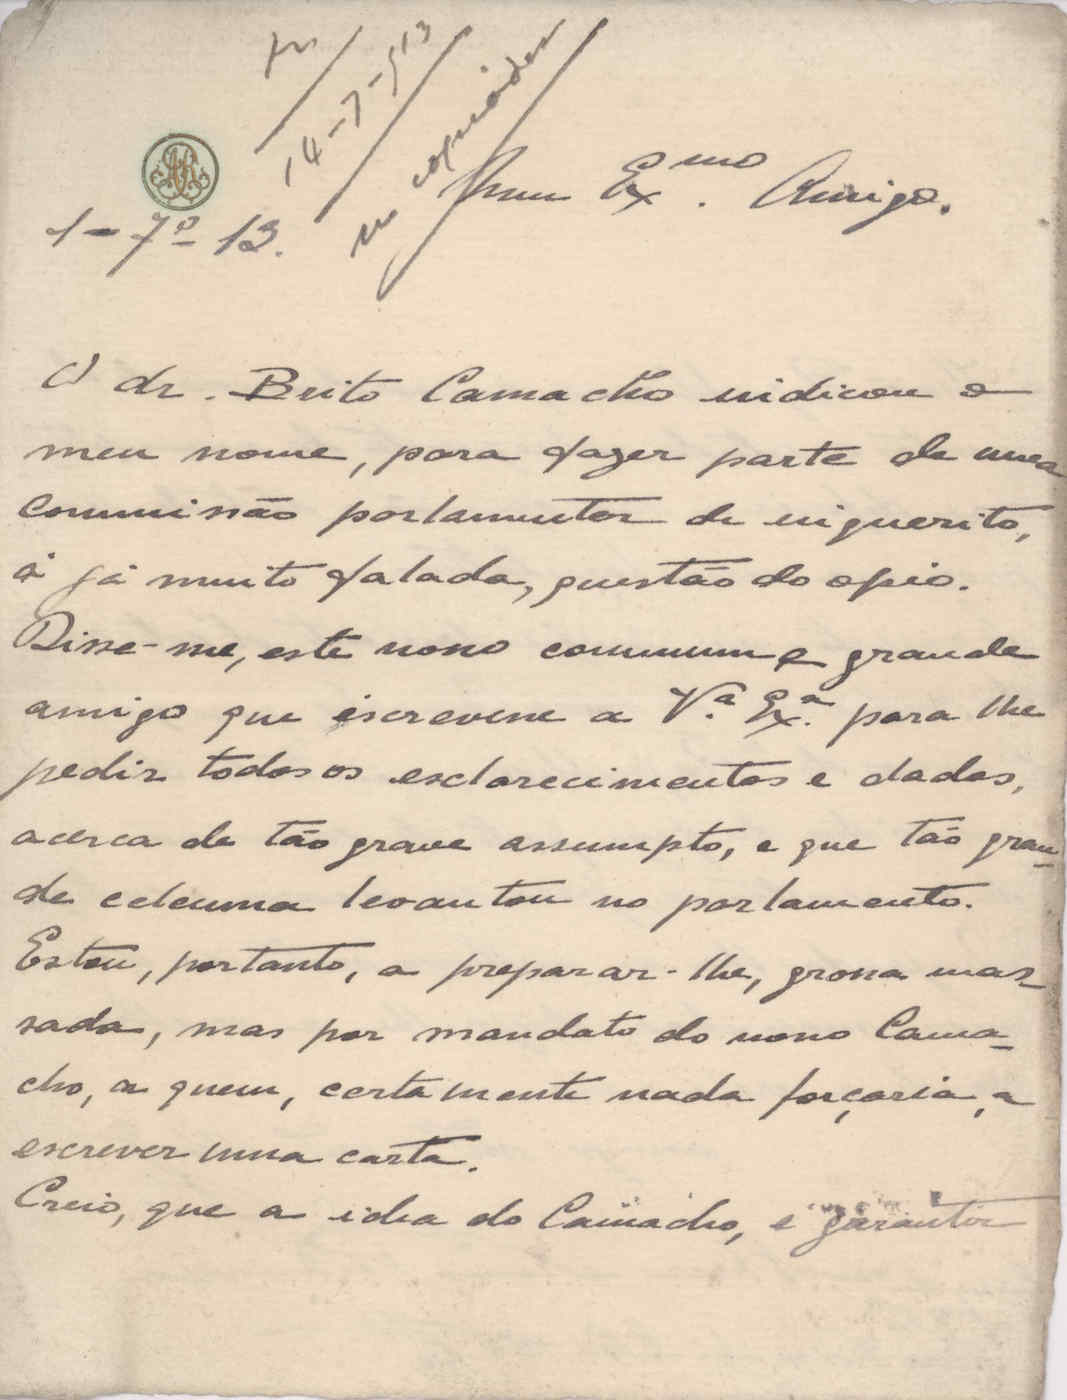 14-7-913
no copiador
Meu Ex.mo Amigo.
1-7º-13.
O dr. Brito Camacho indicou o
meu nome, para fazer parte de uma
commissão parlamentar de inquerito,
á já muito falada, questão do opio.
Disse-me, este nosso commum e grande
amigo que escrevesse a V.ª Ex.ª para lhe
pedir todos os esclarecimentos e dados,
acerca de tão grave assumpto, e que tão gran-
de celeuma levantou no parlamento.
Estou, portanto, a preparar-lhe, grossa mas-
sada, mas por mandato do nosso Cama-
cho, a quem, certamente nada forçaria, a
escrever uma carta.
Creio, que a idea do Camacho, é garantir